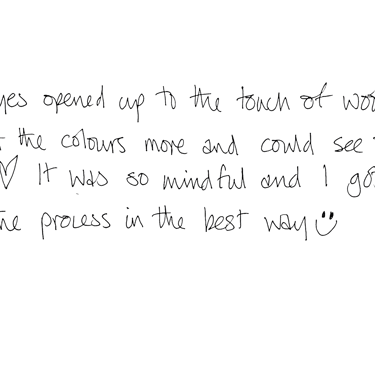 yes opened up to the touch of woo
the colours more and could see
♡ It was so mindful and I go
he process in the best way ☺